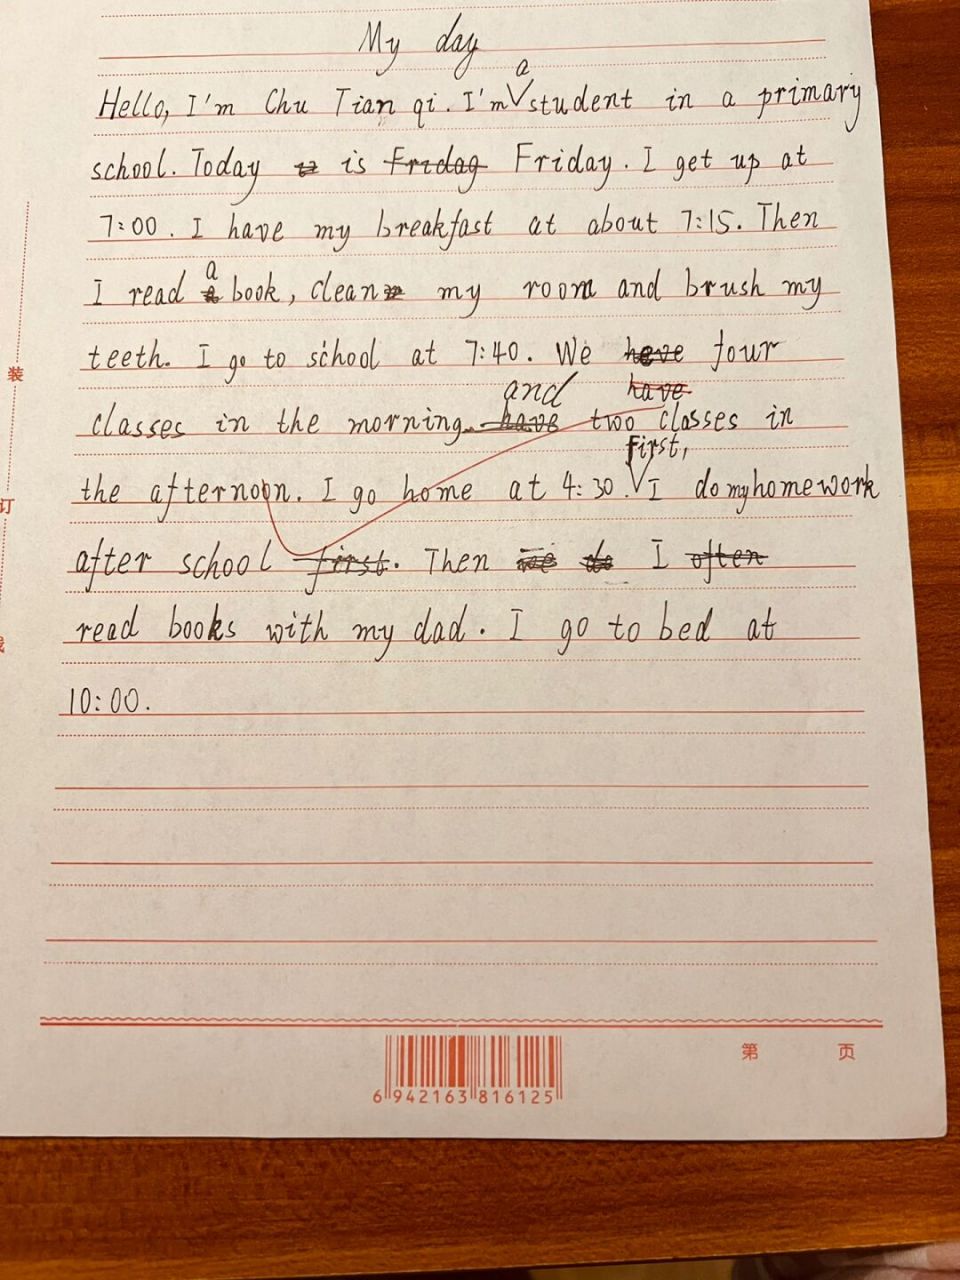 My day
Hello, I'm Chu Tian qi. I'm a student in a primary
school. Today is Friday Friday. I get up at
7:00. I have my breakfast at about 7:15. Then
I read a book, clean my room and brush my
teeth. I go to school at 7:40. We have have four
classes in the morning. have and two classes in
the afternoon. I go home at 4:30. First, I do my homework
after school first. Then we do I often
read books with my dad. I go to bed at
10:00.
装
订
线
6 942163 816125
第 页